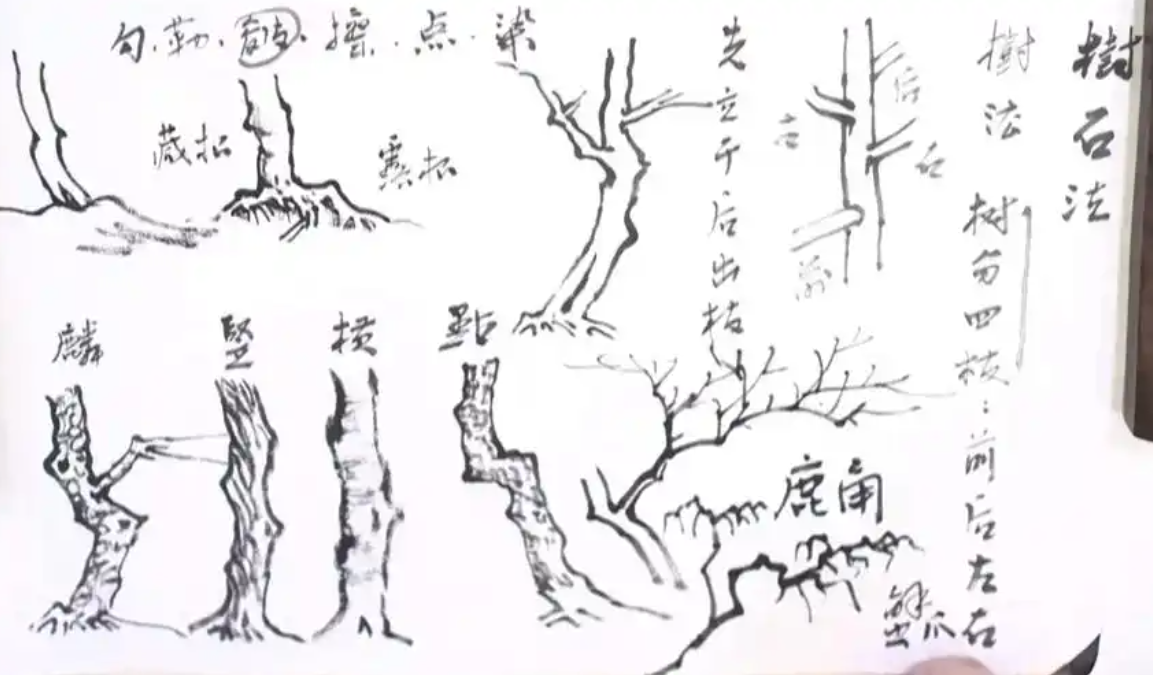 樹石法
樹法 树分四枝：前后左右
后
右
左
前
先立干后出枝
勾.勒.皴.擦.点.染
藏根
露根
麟
竖
横
點
鹿角
蟹爪